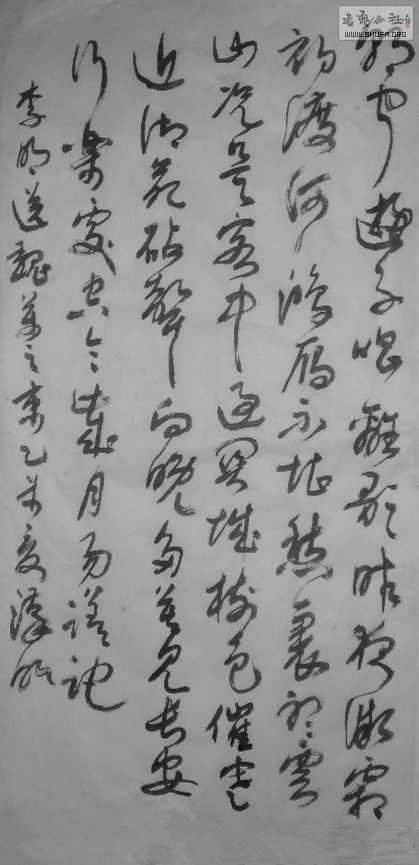 朝聞遊子唱離歌昨夜微霜
初渡河鴻雁不堪愁裏聽雲
山况是客中過關城樹色催寒
近御苑砧聲向晚多莫見長安
行樂處空令歲月易蹉跎
李頎送魏萬之京乙未夏
WWW.SHUFA.ORG